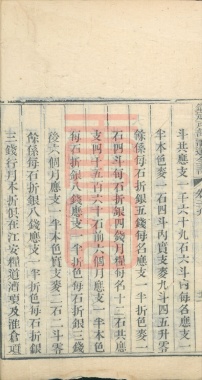 斗共應支一千六十九石六斗內每名應支
半本色麥一石四斗內實支麥九斗四五升零
餘係每石折銀五錢每名應支一半折色麥一
石四斗每石折銀四錢月糧每名十二石共應
支四千五百六十石前六個月應支一半本色
每石折銀八錢應支一半折色每石折銀三錢
後六個月應支一半本色實支麥二石一斗零
餘係每石折銀八錢應支一半折色每石折銀
三錢行月本折俱在江安糧道漕項及淮倉項